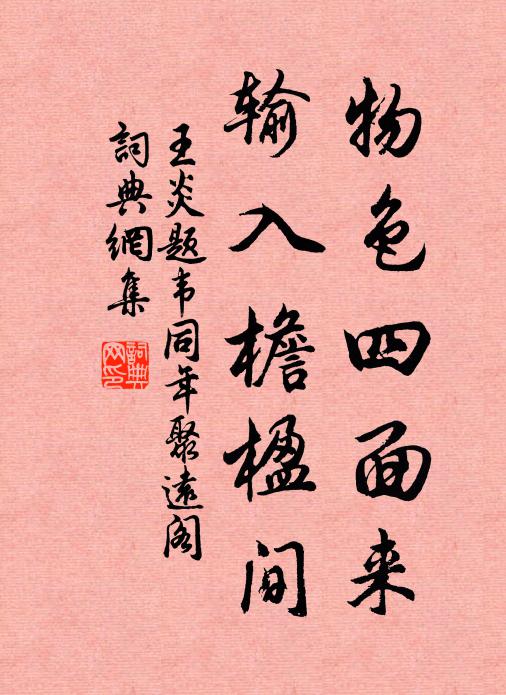 物色四面来
输入檐楹间
王炎题韦同年聚远阁
詞典網集
詞典网印